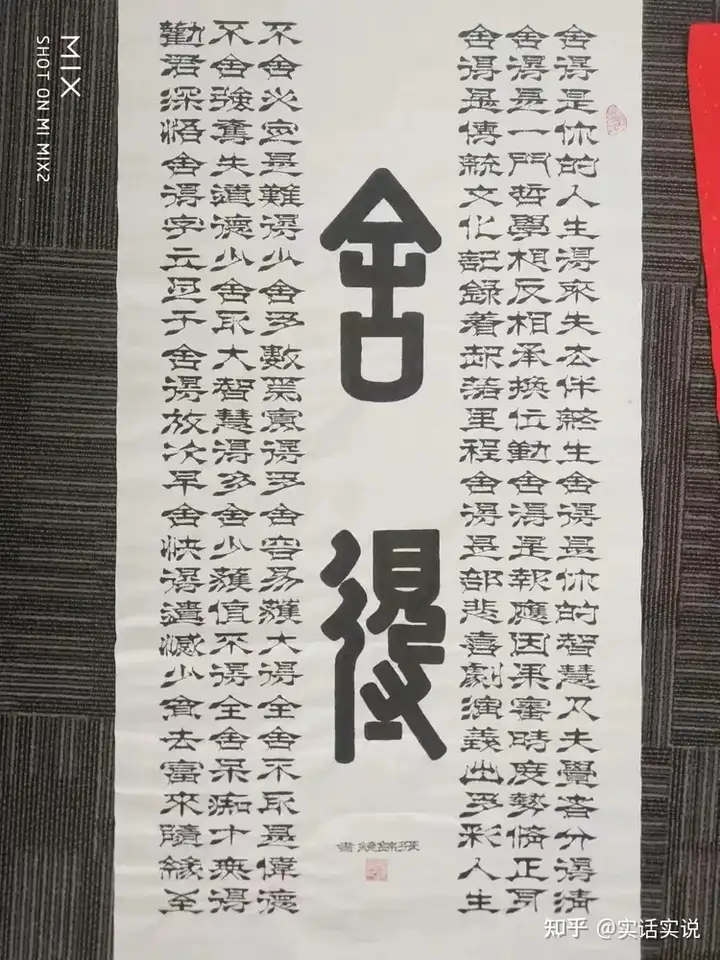 MIX
SHOT ON MI MIX2
舍得是你的人生得來失去伴終生舍得是你的智慧凡夫覺者分得清
舍得是一門哲學相反相承換位勤舍得是報應因果審時度勢正
舍得是傳統文化記錄着起落里程舍得是部悲喜劇演義出多彩人生
舍得
不舍必定是難得少舍多數果實得多舍容易獲大得全舍不取是偉德
不舍強奪失道德少舍取大智慧得多舍少獲值不得全舍呆痴才無得
勸君深悟舍得字立足于舍得放次早舍快得遺減少貪去富來隨緣至
書
知乎 @实话实说